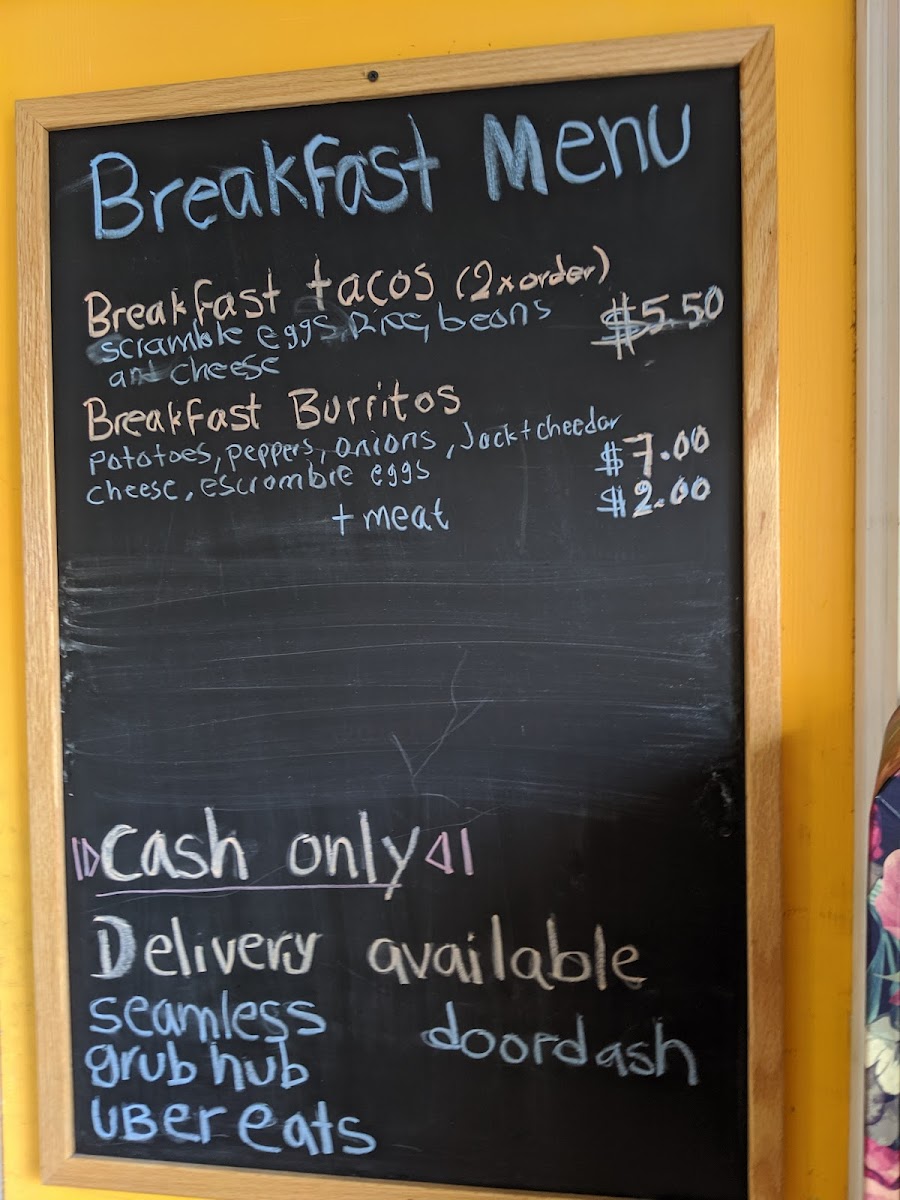 Breakfast Menu
Breakfast tacos (2x order)
scramble eggs, Rice, beans $5.50
and cheese
Breakfast Burritos
potatoes, peppers, onions, Jack + cheedar
cheese, escramble eggs $7.00
+ meat $2.00
Cash only
Delivery available
seamless doordash
grub hub
UBer eats